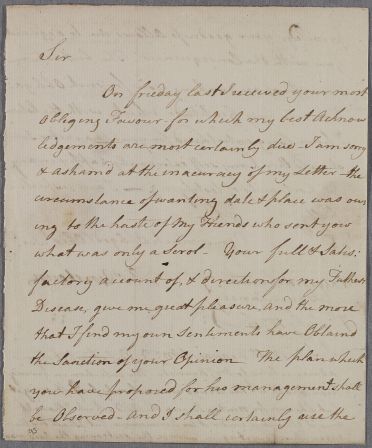 Sir
On frieday last I received your most
obligeng Favour for which my best Acknow
ledgements are most certainly due. I am sorry
& asham'd at the inacuracy of my Letter - the
circumstance of wanting date & place was ow
ing to the haste of my Friends who sent you
what was only a Scrol - Your full & Satis:
factory account of, & directions for my Fathers
Disease, give me great pleasure, and the more
that I find my own Sentiments have Obtaind
the Sanction of your Opinion The plan which
you have proposed for his management shall
be Observed - And I shall certainly use the